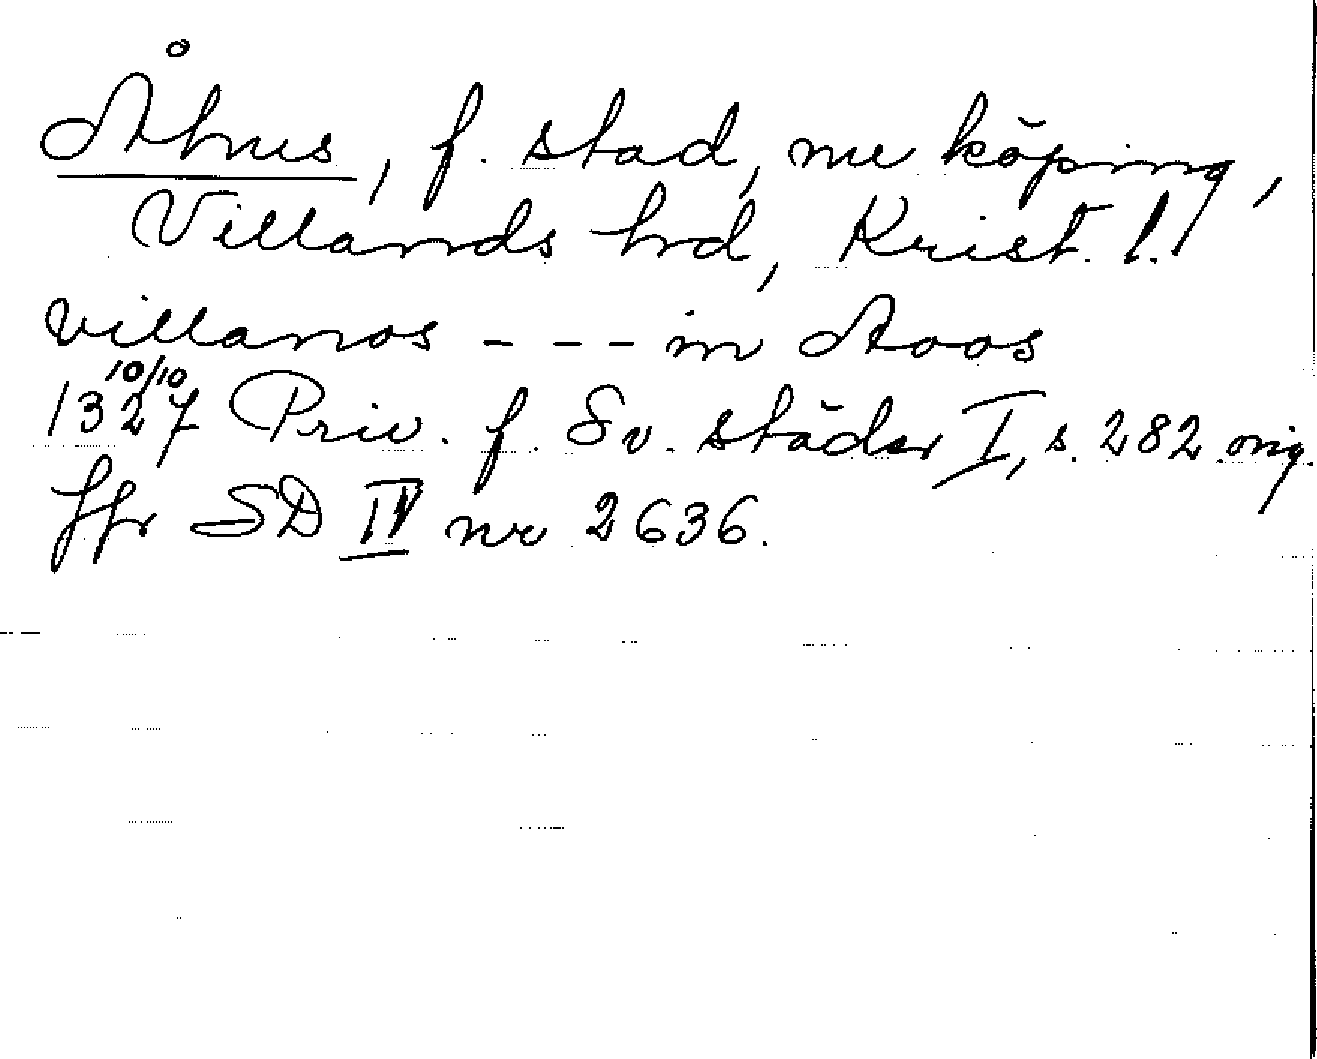 Åhus, f. stad, nu köping,
Villands hd, Krist. l.
villanos - - - in Aoos
10/10
1327 Priv. f. Sv. städer I, s. 282 orig.
Jfr SD IV nr 2636.